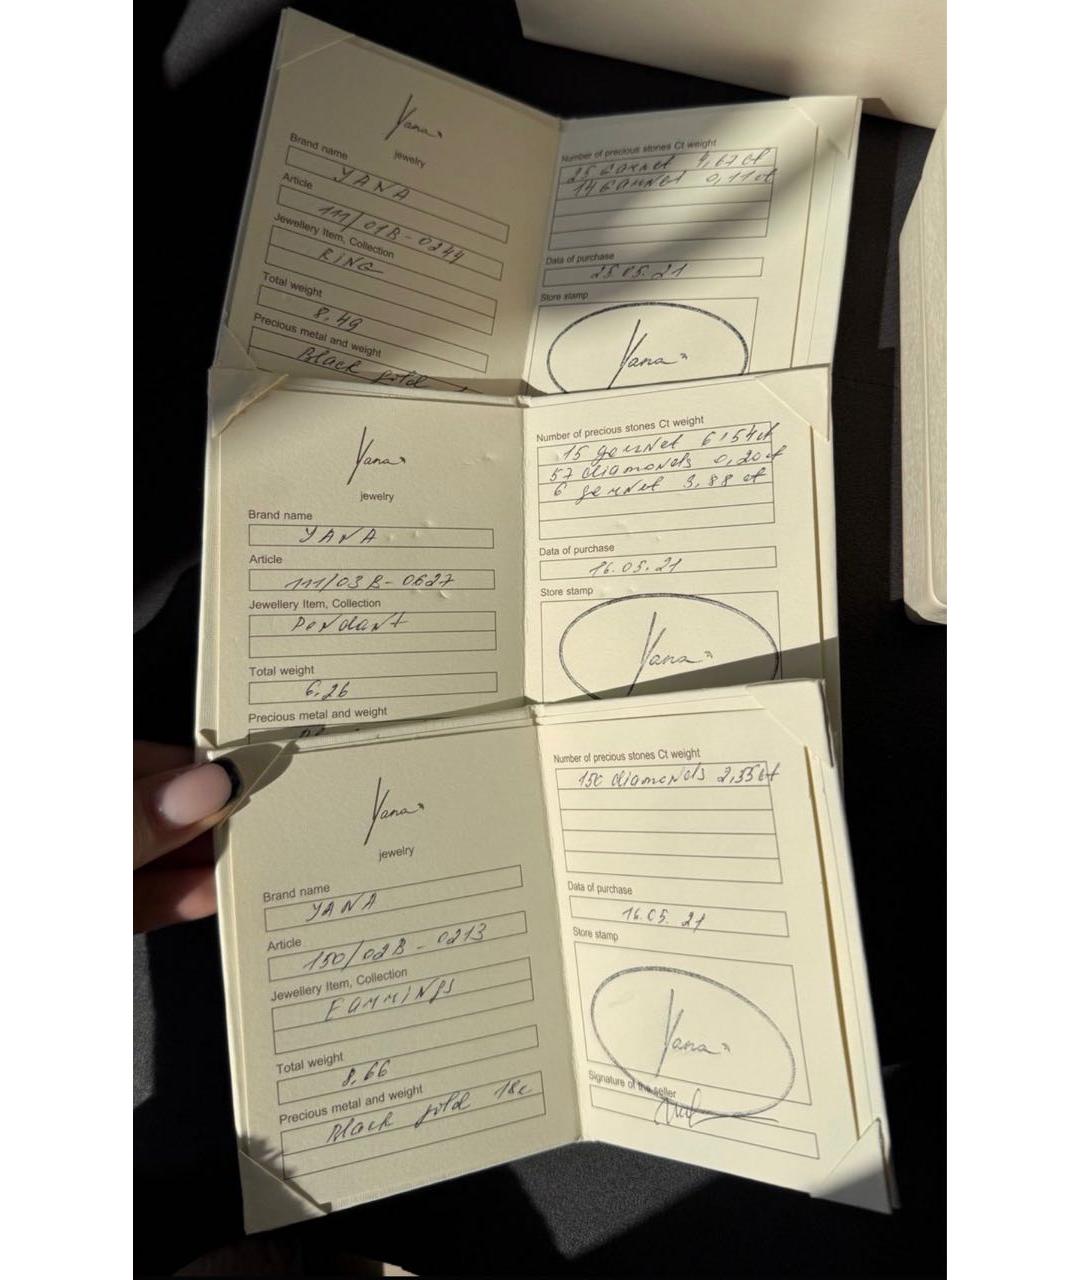 Yana
jewelry
Brand name
YANA
Article
111/01B-0244
Jewellery Item, Collection
RING
Total weight
8,49
Precious metal and weight
Black gold
Number of precious stones Ct weight
25 Garnet 4,67ct
14 Garnet 0,11ct
Data of purchase
25.05.21
Store stamp
Yana
Yana
jewelry
Brand name
YANA
Article
111/03B-0627
Jewellery Item, Collection
Pendant
Total weight
6,26
Precious metal and weight
Number of precious stones Ct weight
15 garnet 6,54ct
57 diamonds 0,20ct
6 garnet 3,88 ct
Data of purchase
16.05.21
Store stamp
Yana
Yana
jewelry
Brand name
YANA
Article
150/02B-0213
Jewellery Item, Collection
Earrings
Total weight
8,66
Precious metal and weight
Black gold 18c
Number of precious stones Ct weight
150 diamonds 2,35ct
Data of purchase
16.05.21
Store stamp
Yana
Signature of the seller